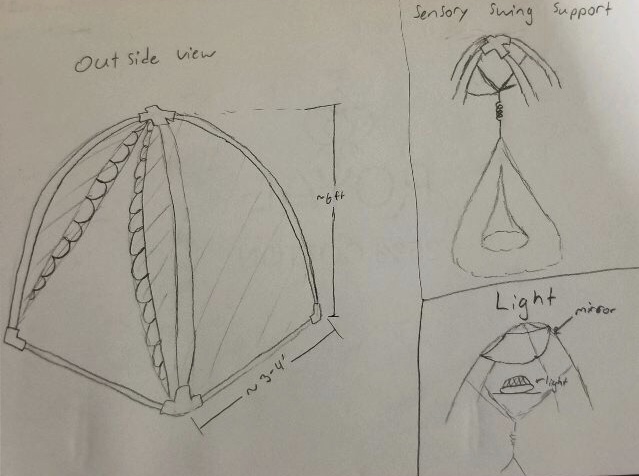 Outside view
~6ft
~3-4'
Sensory Swing Support
Light
mirror
light